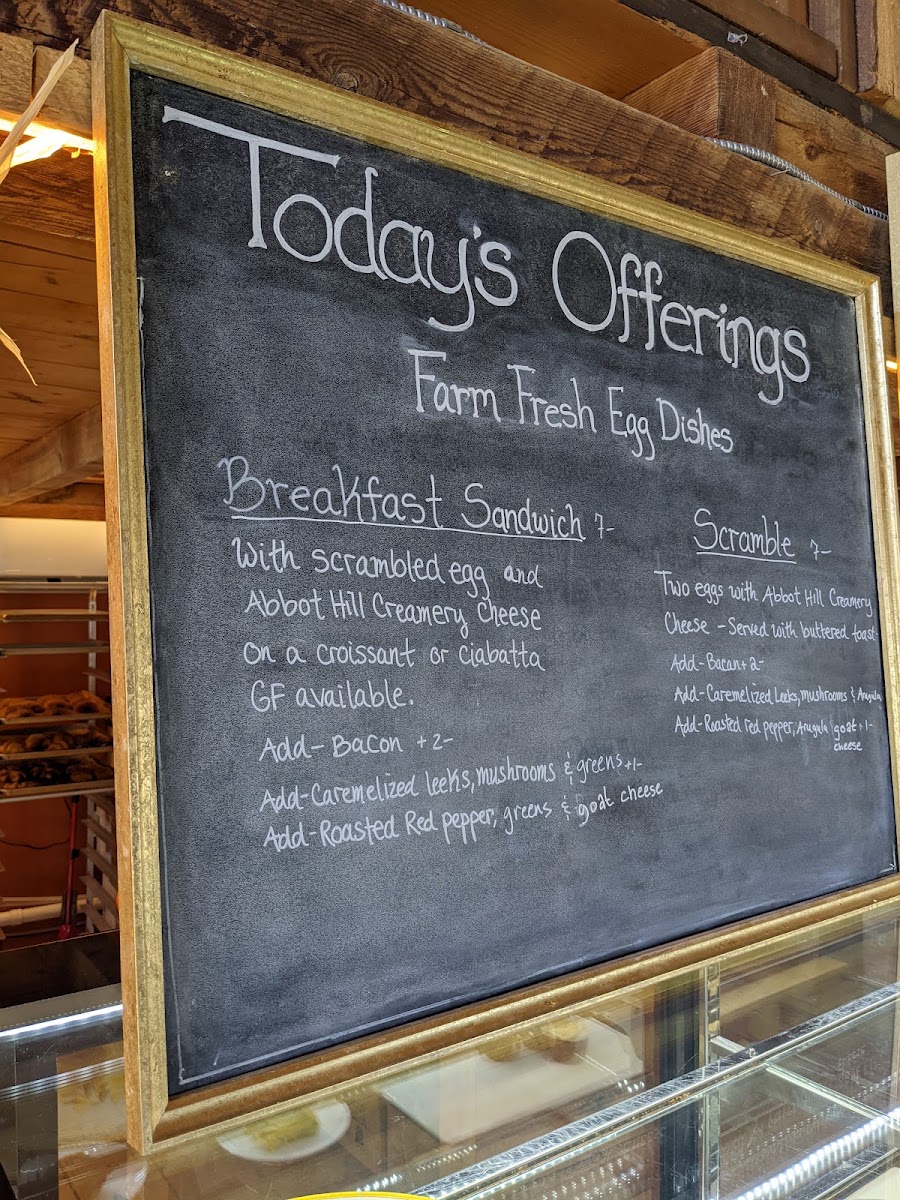 Today's Offerings
Farm Fresh Egg Dishes
Breakfast Sandwich 7-
with scrambled egg and
Abbot Hill Creamery Cheese
on a croissant or ciabatta
GF available.
Add- Bacon +2-
Add-Caremelized leeks, mushrooms & greens +1-
Add-Roasted Red pepper, greens & goat cheese
Scramble 7-
Two eggs with Abbot Hill Creamery
Cheese - Served with buttered toast-
Add-Bacon+2-
Add-Caremelized Leeks, mushrooms & Arugula
Add-Roasted red pepper, Arugula goat +1-
cheese